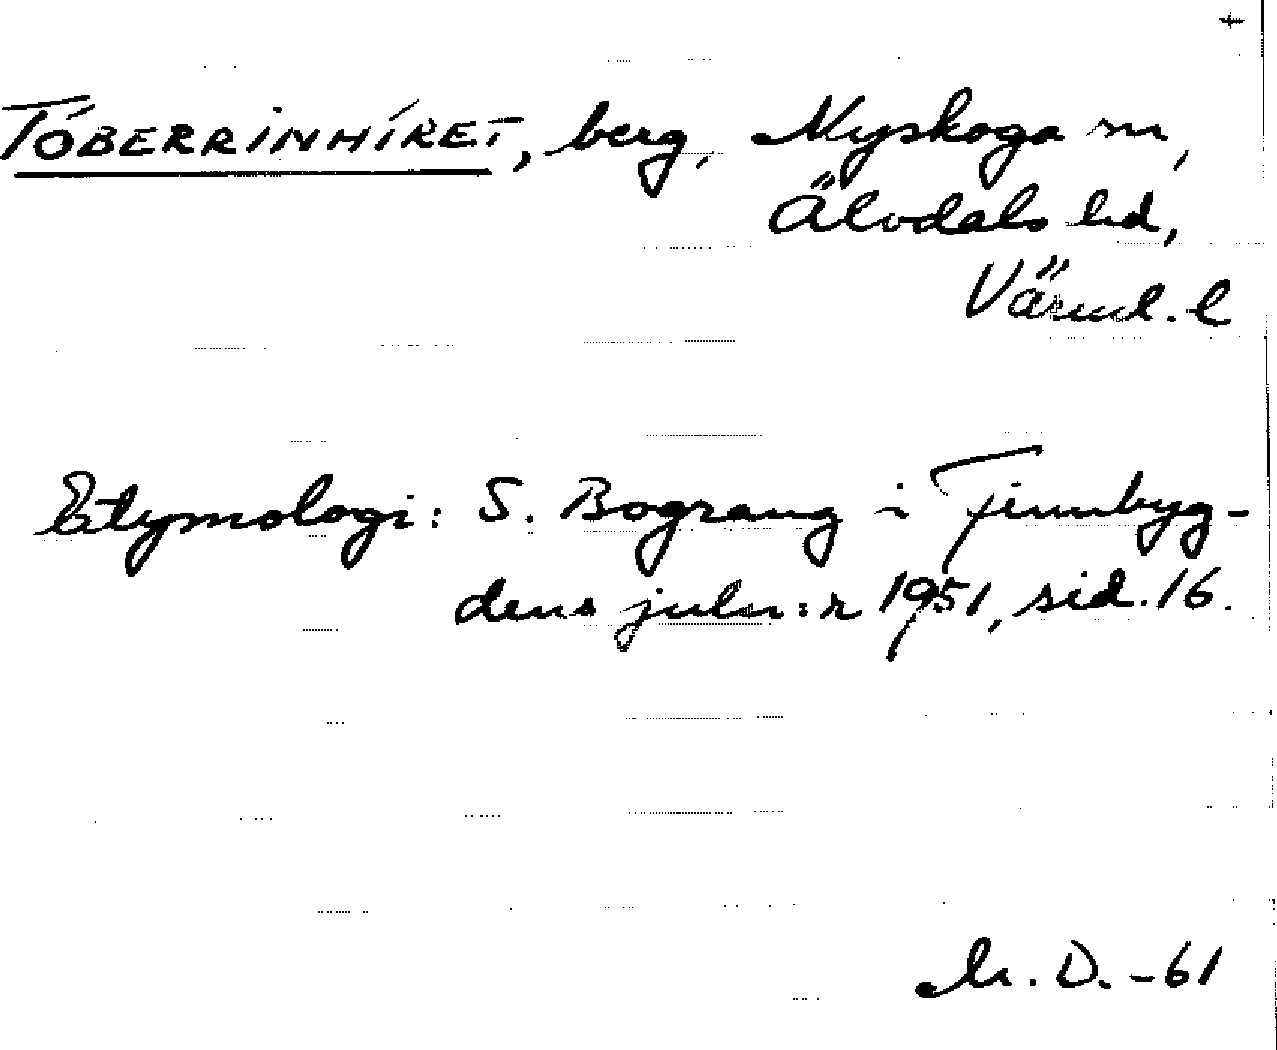 TÓBERRINHÍRET, berg, Nyskoga sn,
Älvdals hd,
Värml. l
Etymologi: S. Bograng i Finnbyg-
dens juln:r 1951, sid. 16.
M. D. -61